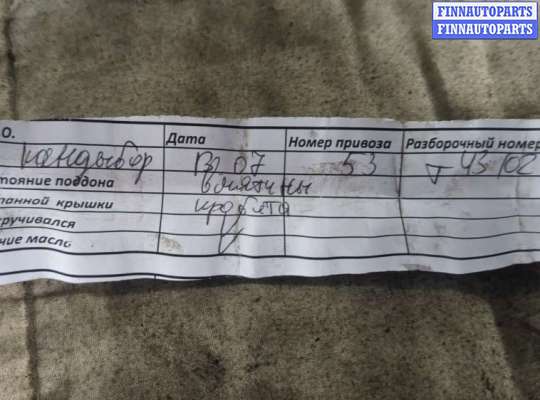 FINNAUTOPARTS
FINNAUTOPARTS
.О. Дата Номер привоза Разборочный номер
07 53 43102
тояние поддона вмятины
панной крышки
ручивался
ние масло